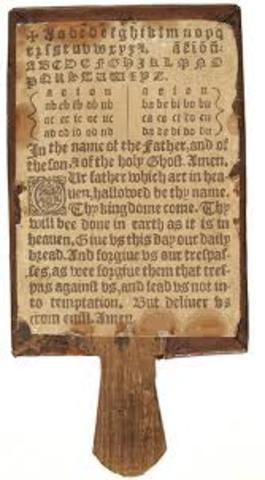 ✠ A a b c d e f g h i k l m n o p q
r z s ſ t u v w x y z
A B C D E F G H I K L M N O
P Q R S T U W X Y Z
a e i o u a e i o u
ab eb ib ob ub ba be bi bo bu
ac ec ic oc uc ca ce ci co cu
ad ed id od ud da de di do du
In the name of the Father, and of
the ſon, & of the holy Ghoſt. Amen.
Our father which art in hea-
uen, hallowed be thy name.
Thy kingdome come. Thy
will bee done in earth as it is in
heauen. Giue vs this day our daily
bread. And forgiue vs our treſpaſ-
ſes, as wee forgiue them that treſ-
pas againſt vs, and lead vs not in-
to temptation. But deliuer vs
from euill. Amen.